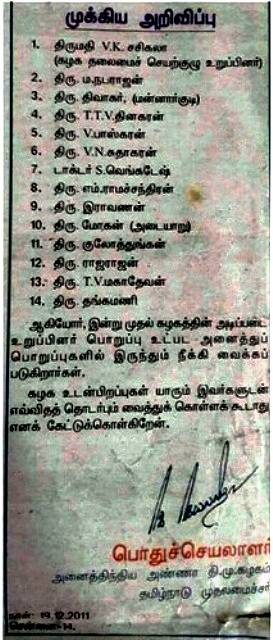 முக்கிய அறிவிப்பு
1. திருமதி V.K. சசிகலா
(கழக தலைமைச் செயற்குழு உறுப்பினர்)
2. திரு. ம.நடராஜன்
3. திரு. திவாகர், (மன்னார்குடி)
4. திரு. T.T.V.தினகரன்
5. திரு. V.பாஸ்கரன்
6. திரு. V.N.சுதாகரன்
7. டாக்டர் S.வெங்கடேஷ்
8. திரு. எம்.ராமச்சந்திரன்
9. திரு. இராவணன்
10. திரு. மோகன் (அடையாறு)
11. திரு. குலோத்துங்கன்
12. திரு. ராஜராஜன்
13. திரு. T.V.மகாதேவன்
14. திரு. தங்கமணி
ஆகியோர், இன்று முதல் கழகத்தின் அடிப்படை
உறுப்பினர் பொறுப்பு உட்பட அனைத்துப்
பொறுப்புகளில் இருந்தும் நீக்கி வைக்கப்
படுகிறார்கள்.
கழக உடன்பிறப்புகள் யாரும் இவர்களுடன்
எவ்விதத் தொடர்பும் வைத்துக் கொள்ளக் கூடாது
எனக் கேட்டுக்கொள்கிறேன்.
பொதுச்செயலாளர்
அனைத்திந்திய அண்ணா தி.மு.கழகம்
தமிழ்நாடு முதலமைச்சர்
நாள்: 19.12.2011
சென்னை-14.